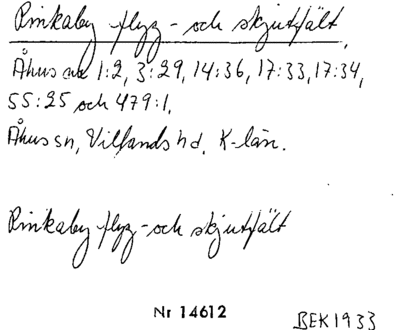 Rinkaby flyg- och skjutfält,
Åhus nr 1:2, 3:29, 14:36, 17:33, 17:34,
55:25 och 479:1,
Åhus sn, Villands hd, K-län.
Rinkaby flyg- och skjutfält
Nr 14612
BEK 1933